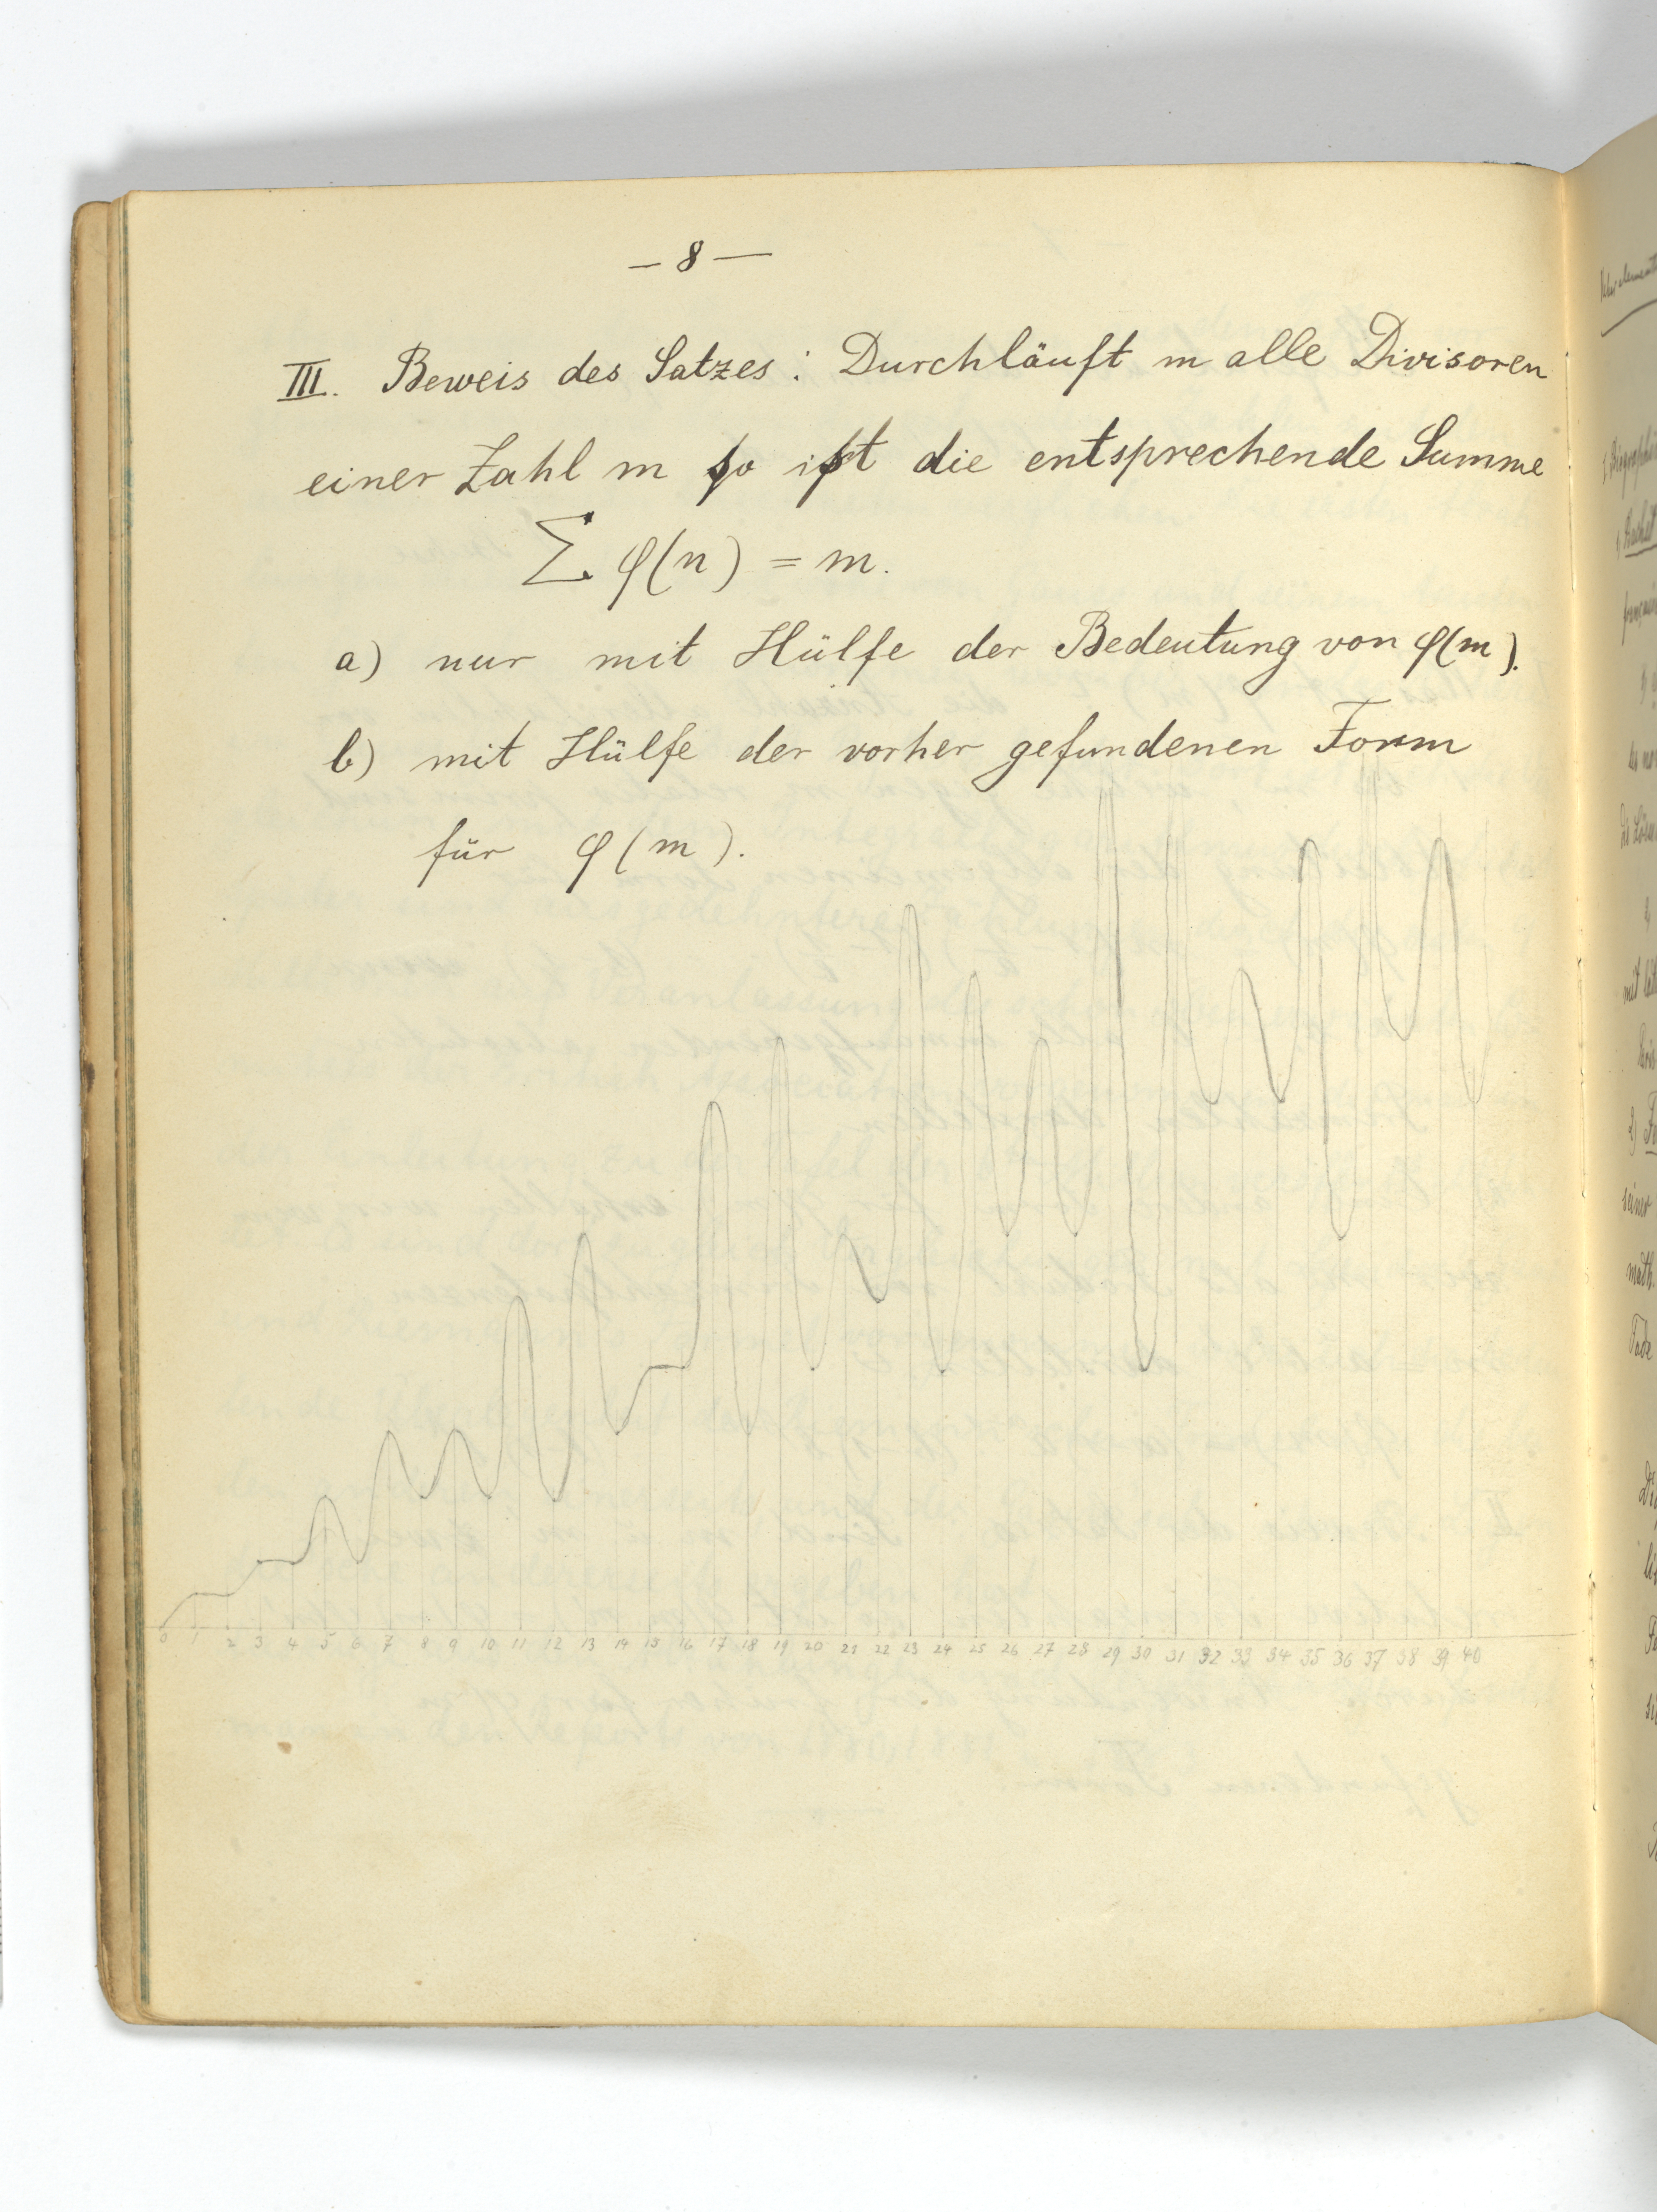 – 8 –
III. Beweis des Satzes: Durchläuft m alle Divisoren
einer Zahl m so ist die entsprechende Summe
∑ φ(n) = m.
a) nur mit Hülfe der Bedeutung von φ(m).
b) mit Hülfe der vorher gefundenen Form
für φ(m).
0 1 2 3 4 5 6 7 8 9 10 11 12 13 14 15 16 17 18 19 20 21 22 23 24 25 26 27 28 29 30 31 32 33 34 35 36 37 38 39 40